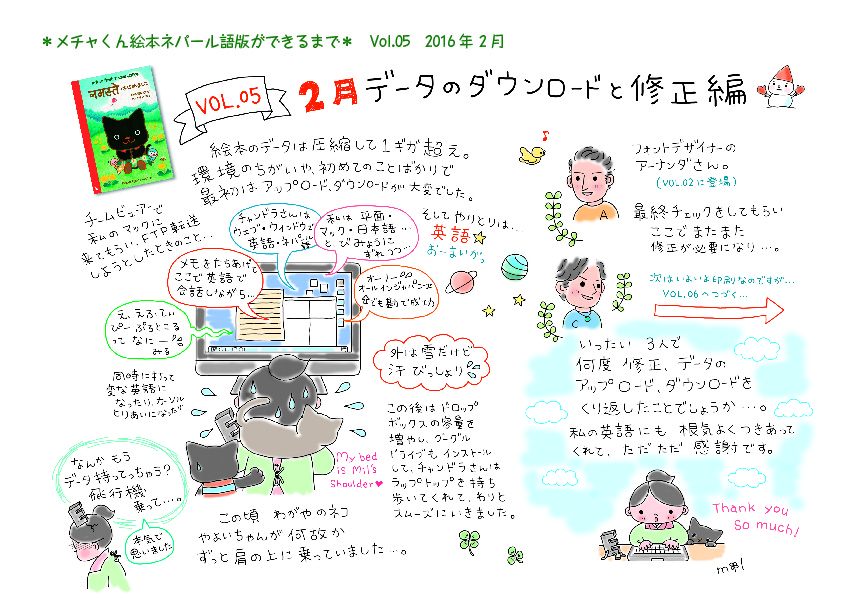 ＊メチャくん絵本ネパール語版ができるまで＊　Vol.05　2016年2月
नमस्ते
VOL.05
2月データのダウンロードと修正編
絵本のデータは圧縮して1ギガ超え。
環境のちがいや、初めてのことばかりで
最初はアップロード、ダウンロードが大変でした。
チームビューアーで
私のマックに
来てもらい、FTP転送
しようとしたときのこと…
チャンドラさんは
ウェブ・ウィンドウズ
英語・ネパール語
私は 平面・
マック・日本語…
とびみょうに
ずれつつ…
そして やりとりは…
英語
おーまいがっ
メモをたちあげて
ここで英語で
会話しながら…
オーノー
オールインジャパニーズ
でも勘で成功
え、えふ・てぃ
ぴー ぷろとこる
って なにー
みる
同時に打って
変な英語に
なったり、カーソル
とりあいになったり
外は雪だけど
汗 びっしょり
My bed
is Mii's
Shoulder
この後はドロップ
ボックスの容量を
増やし、グーグル
ドライブも インストール
して、チャンドラさんは
ラップトップを持ち
歩いてくれて、わりと
スムーズにいきました。
なんか もう
データ持ってっちゃう?
飛行機
乗って…。
本気で
思いました
この頃 わがやのネコ
やよいちゃんが 何故か
ずっと 肩の上に 乗っていました…。
フォントデザイナーの
アーナンダさん。
(VOL.02に登場)
A
最終チェックをしてもらい
ここで またまた
修正が必要になり…。
C
次はいよいよ印刷なのですが…
VOL.06へつづく…
いったい 3人で
何度 修正、データの
アップロード、ダウンロードを
くり返したことでしょうか…。
私の英語にも 根気よくつきあって
くれて、ただただ 感謝です。
Thank you
So much!